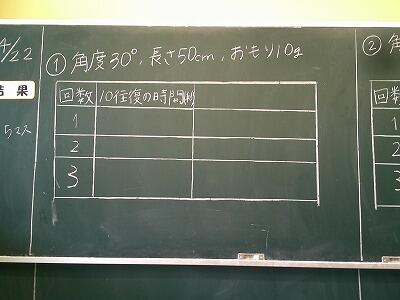 4/22
結果
① 角度30°,長さ50cm,おもり10g
回数 10往復の時間(秒)
1
2
3
②
回数
1
2
3